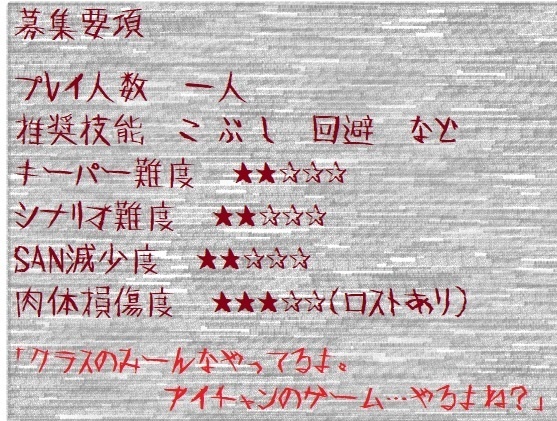 募集要項
プレイ人数　一人
推奨技能　こぶし　回避　など
キーパー難度　★★☆☆☆
シナリオ難度　★★☆☆☆
SAN減少度　★★☆☆☆
肉体損傷度　★★★☆☆(ロストあり)
「クラスのみーんなやってるよ。
アイチャンのゲーム…やるよね?」